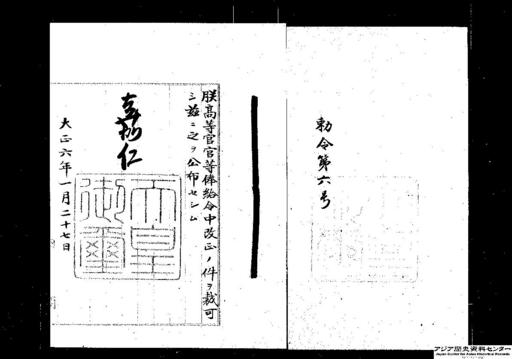 勅令第六号
朕高等官官等俸給令中改正ノ件ヲ裁可
シ茲ニ之ヲ公布セシム
嘉仁
天皇御璽
大正六年一月二十七日
アジア歴史資料センター
Japan Center for Asian Historical Records